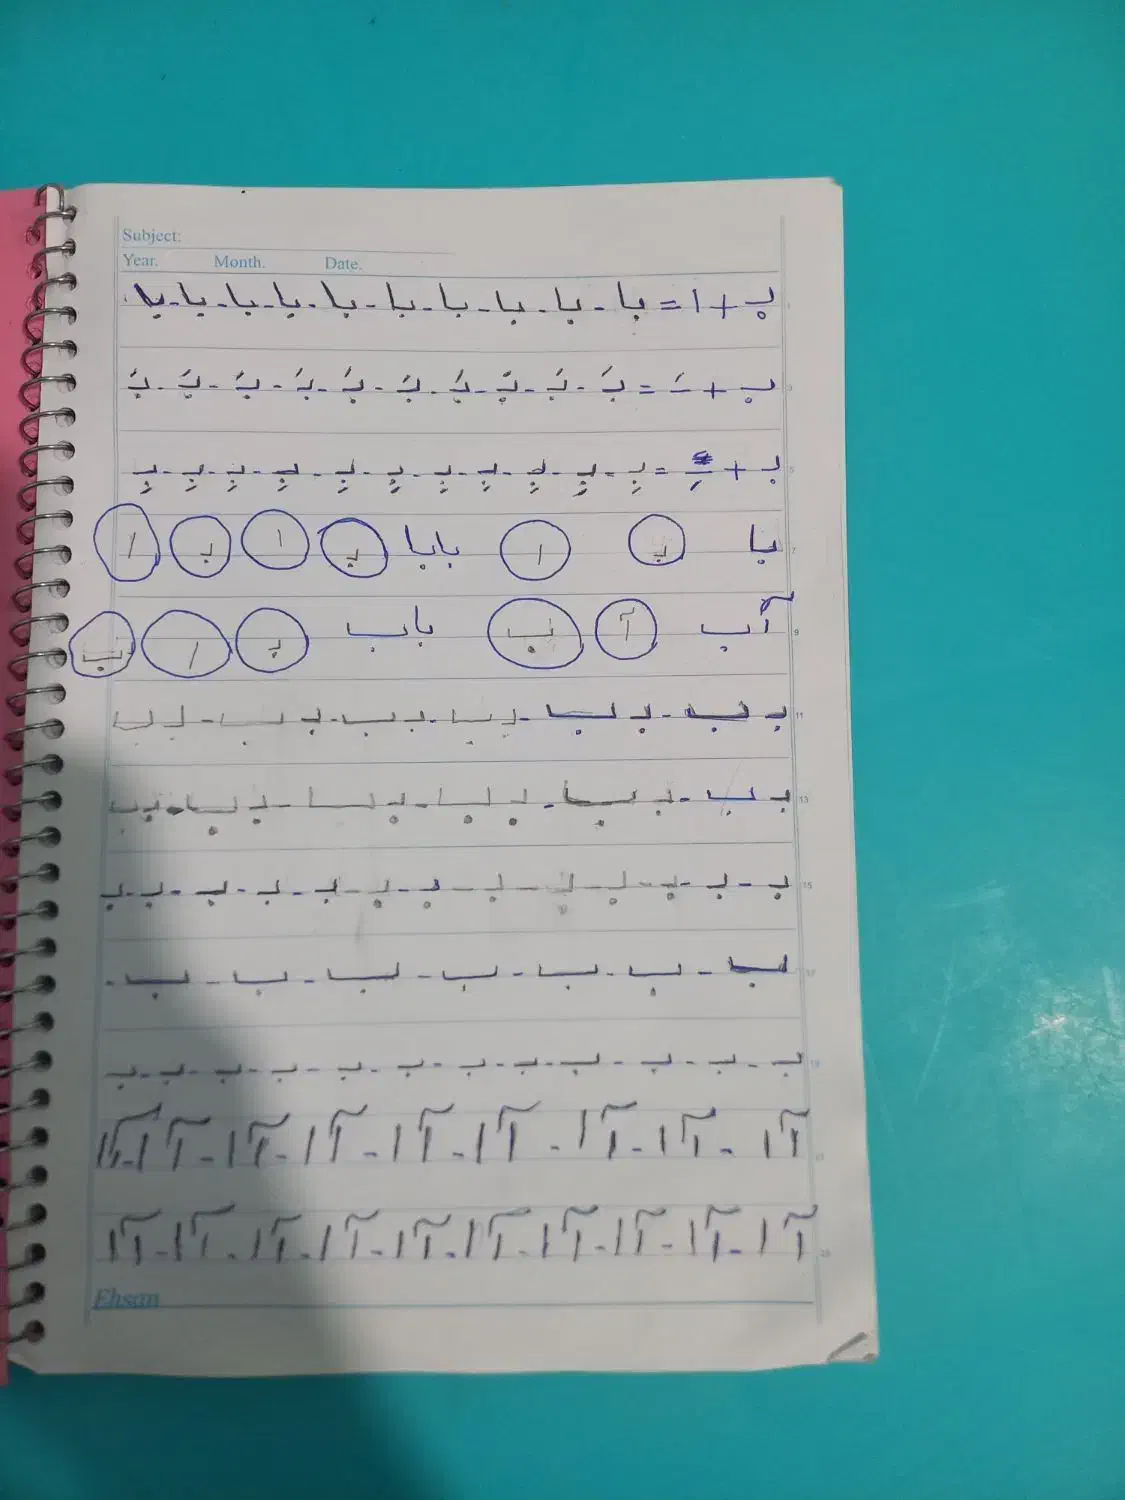 Subject:
Year. Month. Date.
بـ + ا = با - با - با - با - با - با - با - با - با - با
بـ + ـَ = بَـ - بَـ - بَـ - بَـ - بَـ - بَـ - بَـ - بَـ - بَـ - بَـ
بـ + ـِ = بِـ - بِـ - بِـ - بِـ - بِـ - بِـ - بِـ - بِـ - بِـ - بِـ
با بـ ا بابا بـ ا بـ ا
آب آ ب باب بـ ا ب
بـ ب - بـ ب - بـ ب - بـ ب - بـ ب - بـ ب
بـ ب - بـ ب - بـ ب - بـ ب - بـ ب - بـ ب
بـ - بـ - بـ - بـ - بـ - بـ - بـ - بـ - بـ - بـ - بـ - بـ - بـ
ب - ب - ب - ب - ب - ب - ب -
بـ - بـ - بـ - بـ - بـ - بـ - بـ - بـ - بـ - بـ - بـ
آ ا - آ ا - آ ا - آ ا - آ ا - آ ا - آ ا - آ ا - آ ا
آ ا - آ ا - آ ا - آ ا - آ ا - آ ا - آ ا - آ ا - آ ا - آ ا
Ehsan